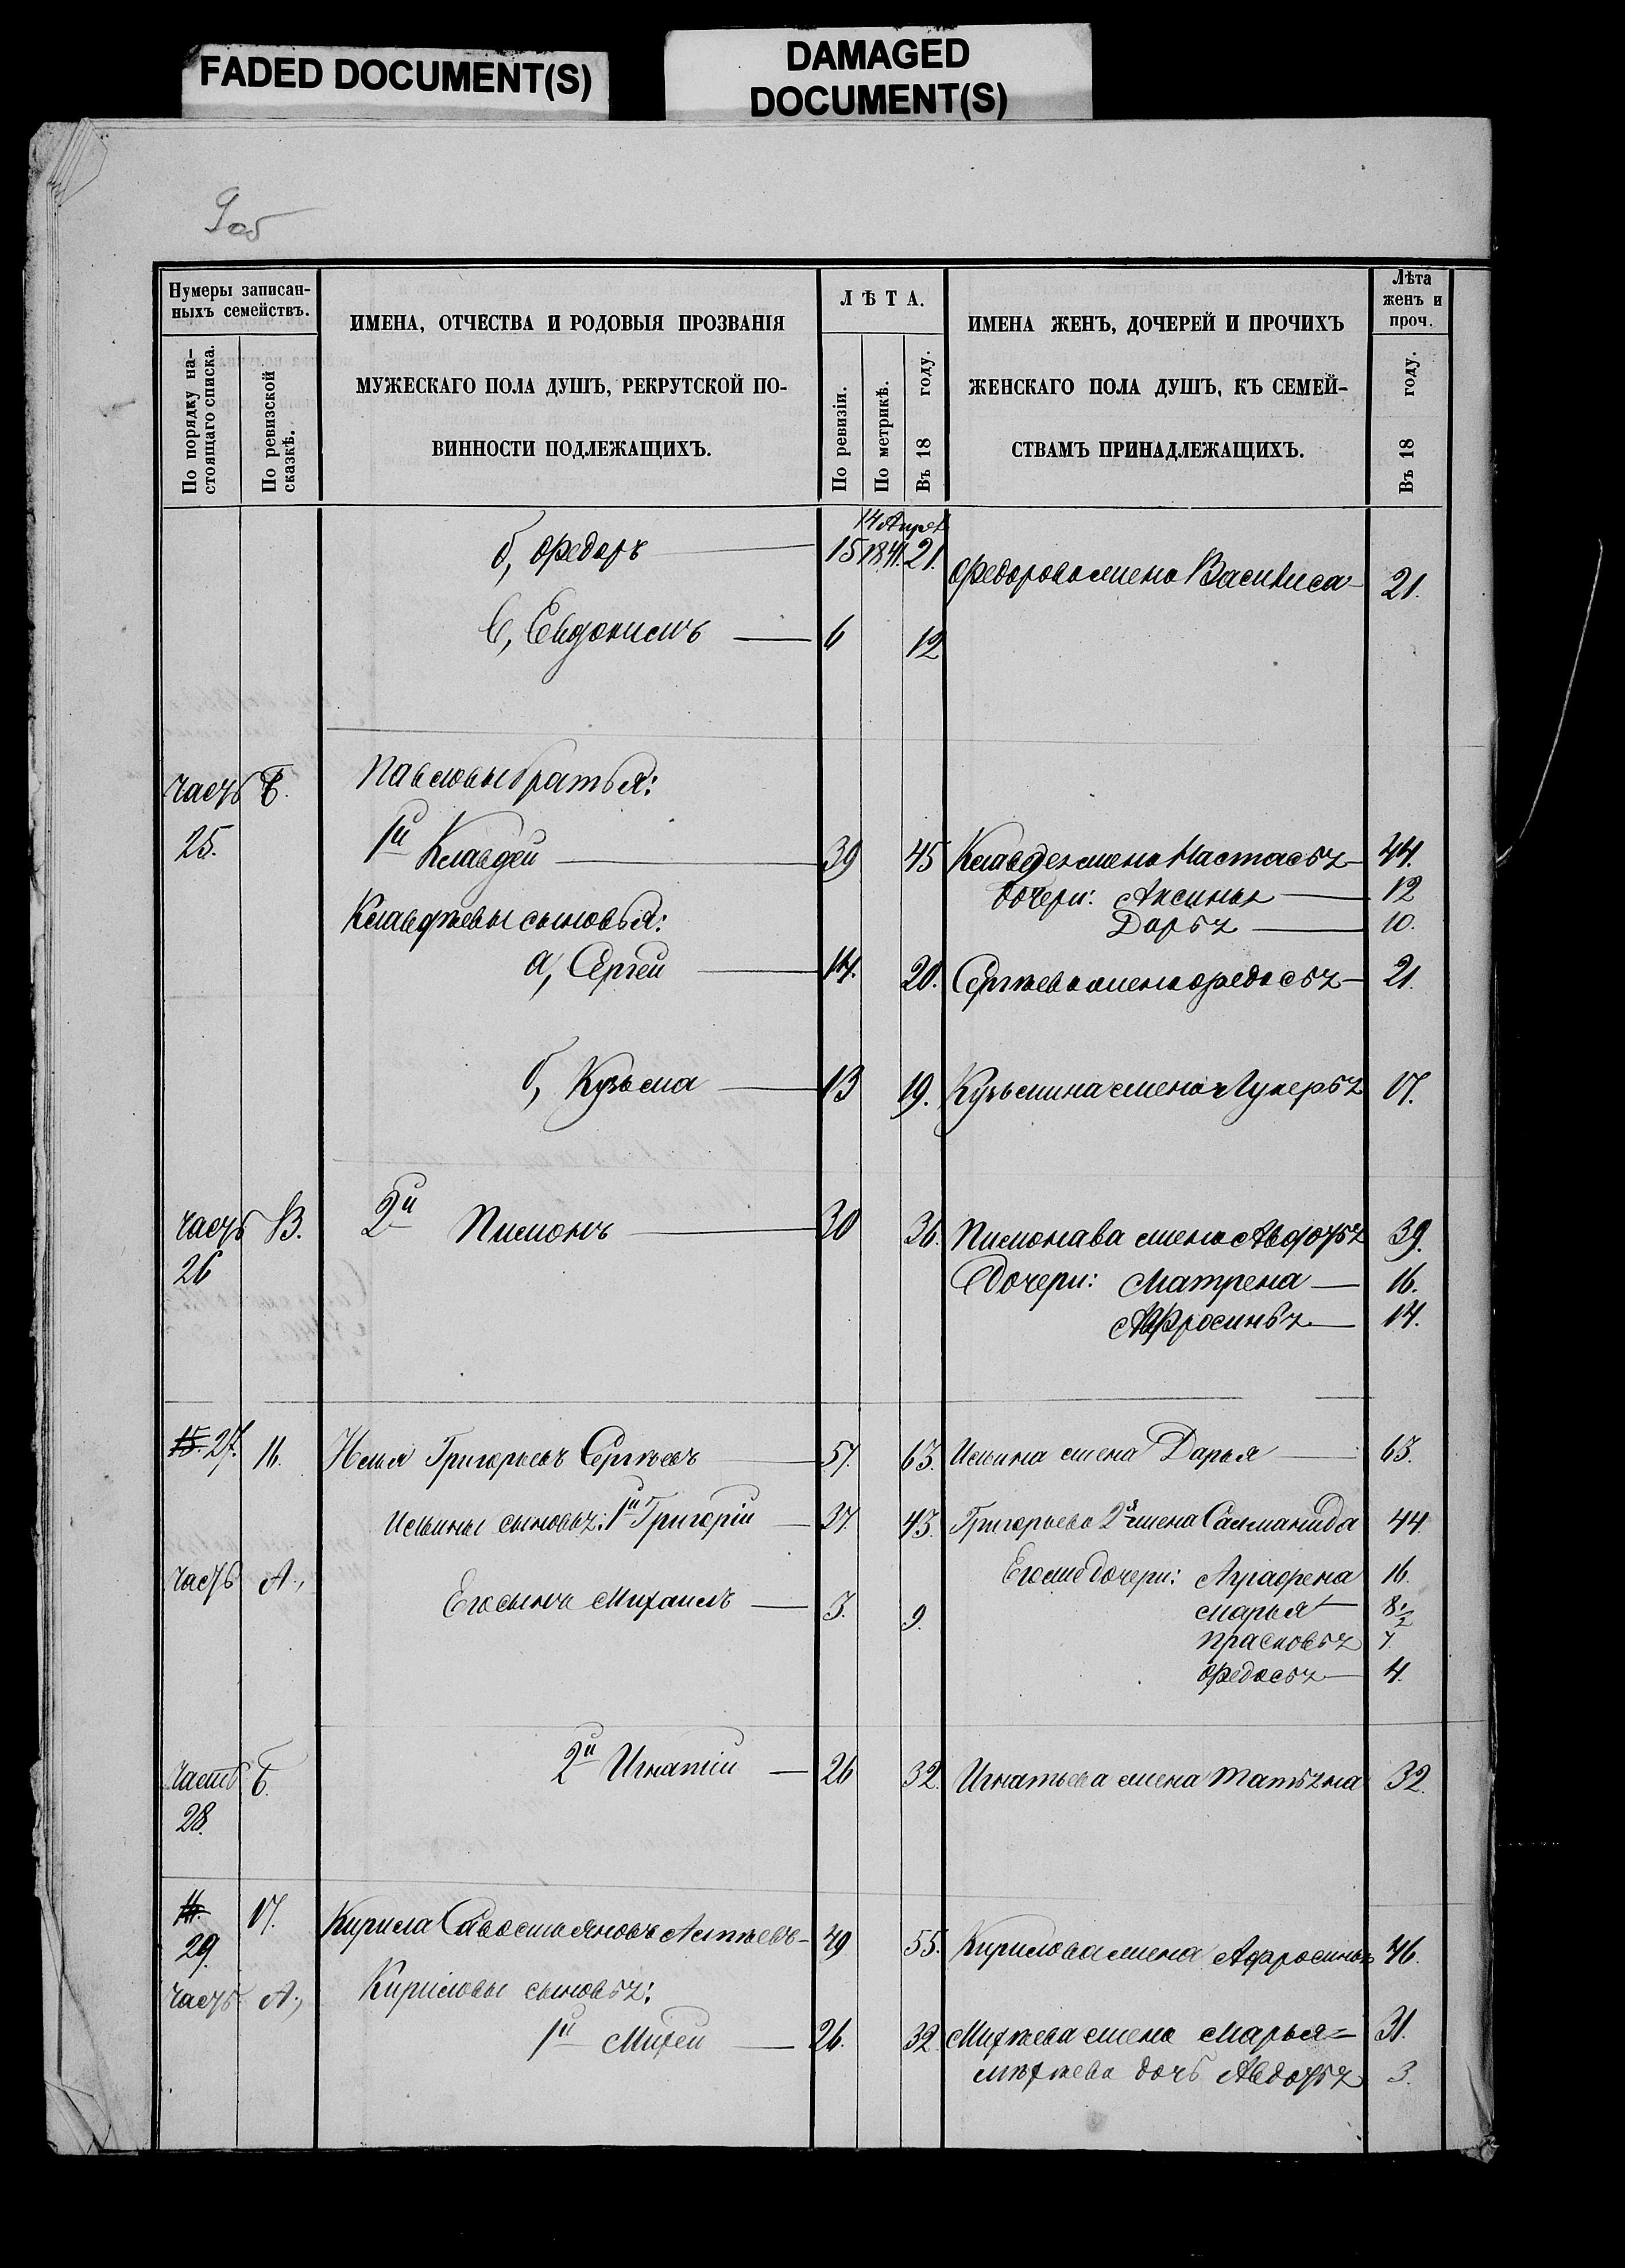 FADED DOCUMENT(S)
DAMAGED
DOCUMENT(S)
9об
Нумеры записан-
ныхъ семействъ.
По порядку на-
стоящаго списка.
По ревизской
сказкѣ.
ИМЕНА, ОТЧЕСТВА И РОДОВЫЯ ПРОЗВАНІЯ
МУЖЕСКАГО ПОЛА ДУШЪ, РЕКРУТСКОЙ ПО-
ВИННОСТИ ПОДЛЕЖАЩИХЪ.
ЛѢТА.
По ревизіи.
По метрикѣ.
Въ 18 году.
ИМЕНА ЖЕНЪ, ДОЧЕРЕЙ И ПРОЧИХЪ
ЖЕНСКАГО ПОЛА ДУШЪ, КЪ СЕМЕЙ-
СТВАМЪ ПРИНАДЛЕЖАЩИХЪ.
Лѣта
женъ и
проч.
Въ 18 году.
14 Апрел
б, Федоръ 15 1841. 21. Федорова жена Василиса 21.
в, Евдокимъ 6 12
часть Б. Павловы братья:
25. 1й Клавдей 39 45 Клавдея жена Настасья 44.
дочери: Аксинья 12
Клавдѣевы сыновья: Дарья 10.
а, Сергей 14. 20. Сергѣева жена Федосья 21.
б, Кузьма 13 19. Кузьмина жена Лукерья 17.
часть В. 2й Пимонъ 30 36. Пимонава жена Авдотья 39.
26 Дочери: Матрена 16.
Афросинья 14.
15. 27. 16. Илья Григорьевъ Сергѣевъ 57. 63. Ильина жена Дарья 63.
Ильины сыновья: 1й Григорій 37. 43. Григорьева 2я жена Салманида 44.
часть А., Егоже дочери: Аграфена 16.
Его сынъ Михаилъ 3. 9. Марья 8 1/2
Прасковья 7.
Федосья 4.
часть Б. 2й Игнатій 26 32 Игнатьева жена Татьяна 32.
28.
16. 17. Кирила Савостьяновъ Астѣевъ 49 55. Кирилова жена Афросинья 46.
29.
часть А., Кириловы сыновья:
1й Михей 26. 32 Михѣева жена Марья 31.
Михѣева дочь Авдотья 3.